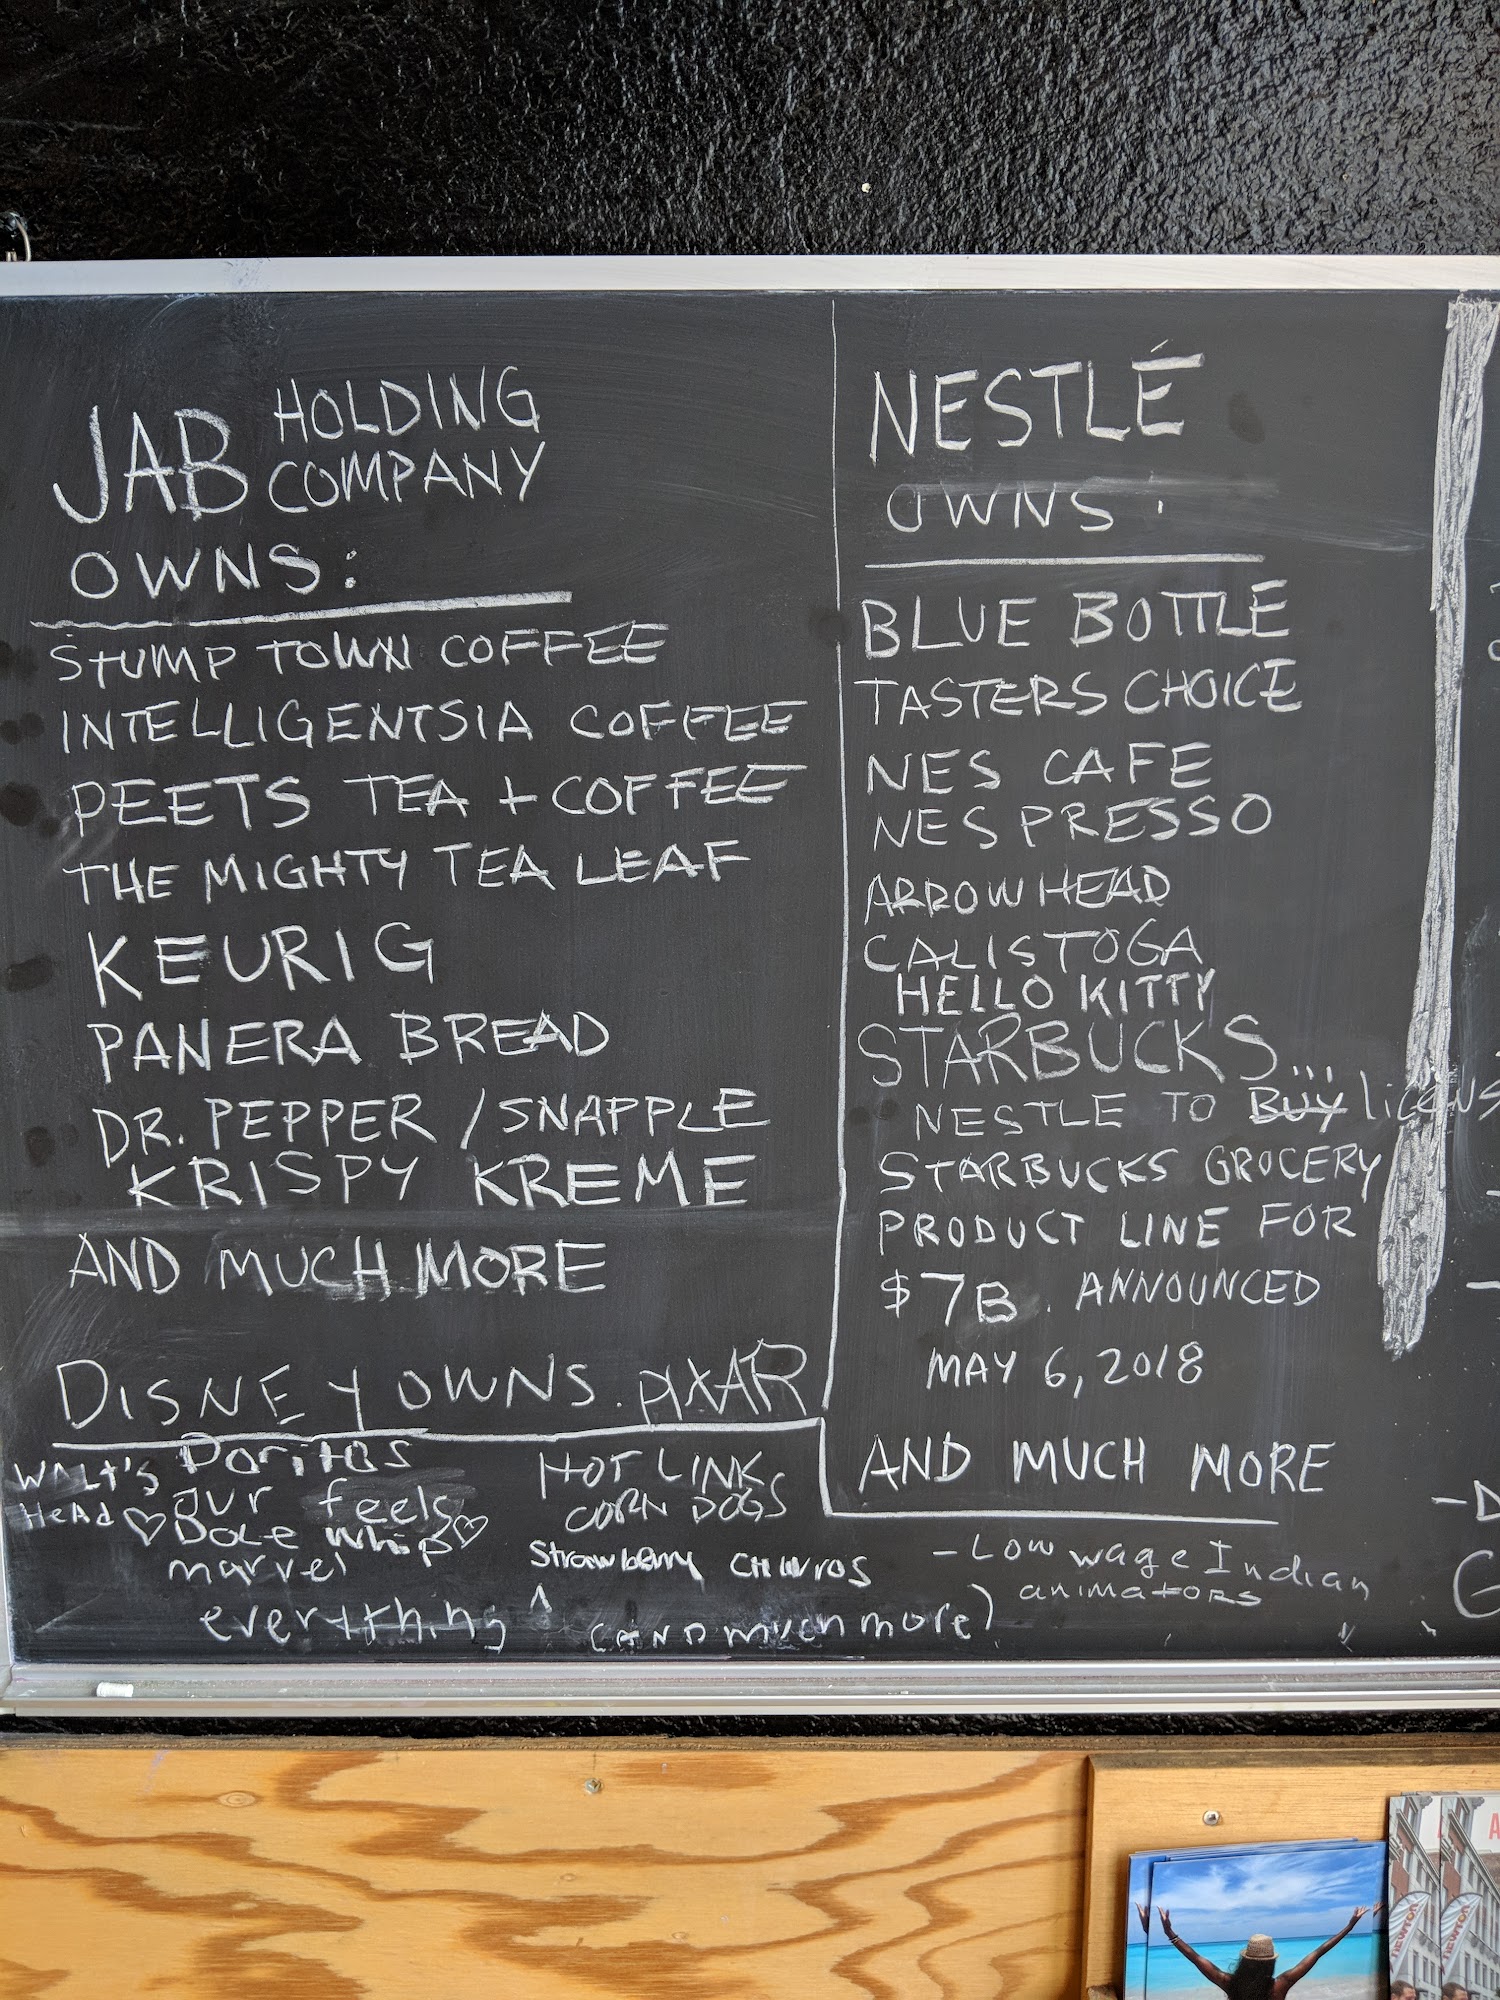 JAB HOLDING
COMPANY
OWNS:
STUMP TOWN COFFEE
INTELLIGENTSIA COFFEE
PEETS TEA + COFFEE
THE MIGHTY TEA LEAF
KEURIG
PANERA BREAD
DR. PEPPER / SNAPPLE
KRISPY KREME
AND MUCH MORE
NESTLÉ
OWNS:
BLUE BOTTLE
TASTERS CHOICE
NES CAFE
NESPRESSO
ARROWHEAD
CALISTOGA
HELLO KITTY
STARBUCKS...
NESTLE TO BUY licens
STARBUCKS GROCERY
PRODUCT LINE FOR
$7B. ANNOUNCED
MAY 6, 2018
AND MUCH MORE
DISNEY OWNS. PIXAR
WALT'S
HeAD ♡
Doritos
our feels
DOLe whip ♡
marvel
everything
HOT LINK
CORN DOGS
Strawberry CHURROS
(AND much more)
- Low wage Indian
animators
NEWTON
NEWTON